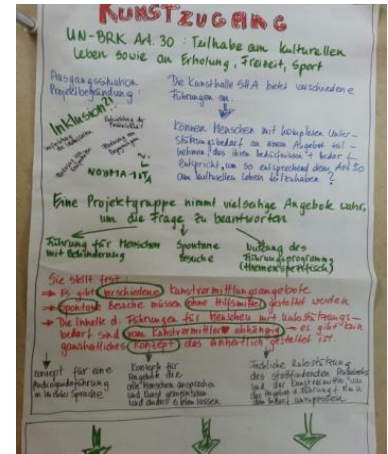 KUNSTZUGANG
UN-BRK Art. 30: Teilhabe am kulturellen
Leben sowie an Erholung, Freizeit, Sport
Ausgangssituation
Projektbegründung!
Die Kunsthalle SHA bietet verschiedene
Führungen an.
Inklusion?!
Können Menschen mit komplexem Unter-
stützungsbedarf an einem Angebot teil-
nehmen, das ihren Bedürfnissen + Bedarf
entspricht, um so entsprechend dem Art 30
am kulturellen Leben teilzuhaben?
Eine Projektgruppe nimmt vielseitige Angebote wahr,
um die Frage zu beantworten
Führung für Menschen
mit Behinderung
Spontane
Besuche
Nutzung des
Führungsprogramm
(themenspezifisch)
Sie stellt fest:
→ Es gibt verschiedene Kunstvermittlungsangebote
→ spontane Besuche müssen ohne Hilfsmittel gestaltet werden
→ Die Inhalte d. Führungen für Menschen mit Unterstützungs-
bedarf sind vom Kunstvermittler abhängig → es gibt kein
ganzheitliches Konzept das einheitlich gestaltet ist.
Konzept für eine
Audioguideführung
in leichter Sprache
Konzepte für
Angebote die
alle Menschen ansprechen
und Kunst gemeinsam
und anders erleben lassen
Fachliche Unterstützung
des stattfindenden
und der Kunstvermittler um
das Angebot d. Führung f. M. m. U
dem Bedarf anzupassen